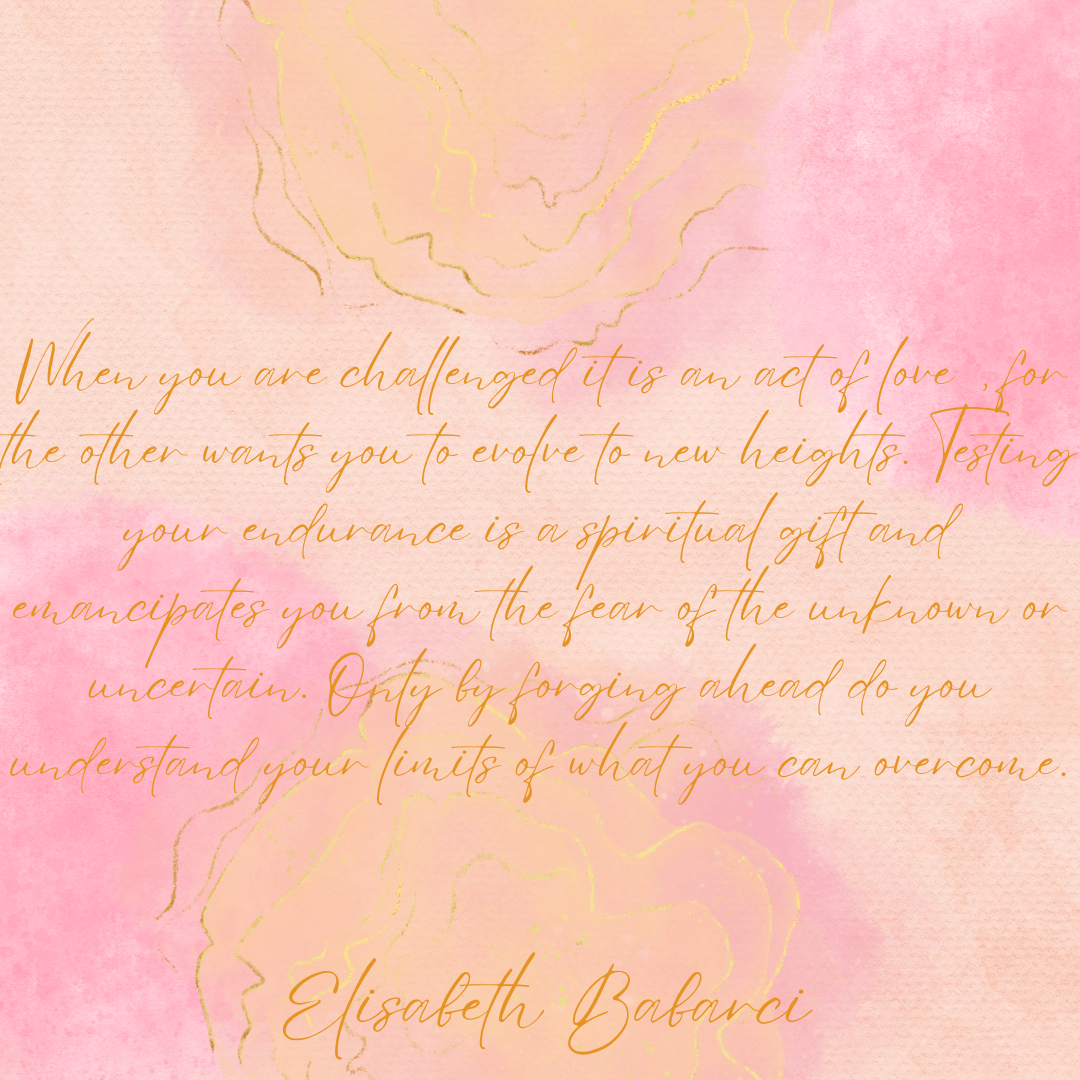 When you are challenged it is an act of love , for
the other wants you to evolve to new heights. Testing
your endurance is a spiritual gift and
emancipates you from the fear of the unknown or
uncertain. Only by forging ahead do you
understand your limits of what you can overcome.
Elisabeth Babarci